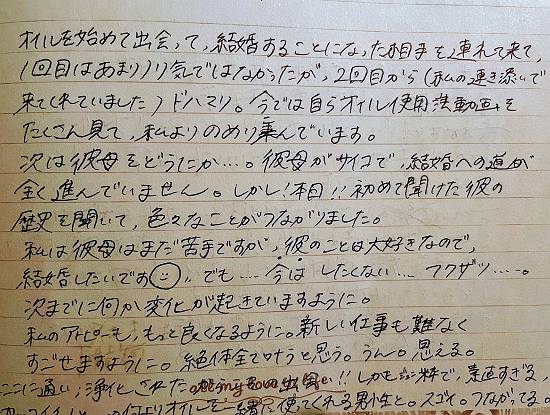 オイルを始めて出会って、結婚することになった相手を連れて来て、
1回目はあまりノリ気ではなかったが、2回目から(私の連き添いで
来てくれていました)ドハマり。今では自らオイル使用法動画を
たくさん見て、私よりのめり込んでいます。
次は彼母をどうにか…。彼母がサイコで、結婚への道が
全く進んでいません。しかし!本日!!初めて聞けた彼の
歴史を聞いて、色々なことがつながりました。
私は彼母はまだ苦手ですが、彼のことは大好きなので、
結婚したいです でも…今はしたくない…フクザツ…。
次までに何か変化が起きていますように。
私のアトピーも、もっと良くなるように。新しい仕事も難なく
すごせますように。絶体全て叶うと思う。うん。思える。
ここに通い、浄化された の出会い!! しかも 料で、素直すぎる、
オイルを一緒に使ってくれる男性と。スゴイ。つながってる。